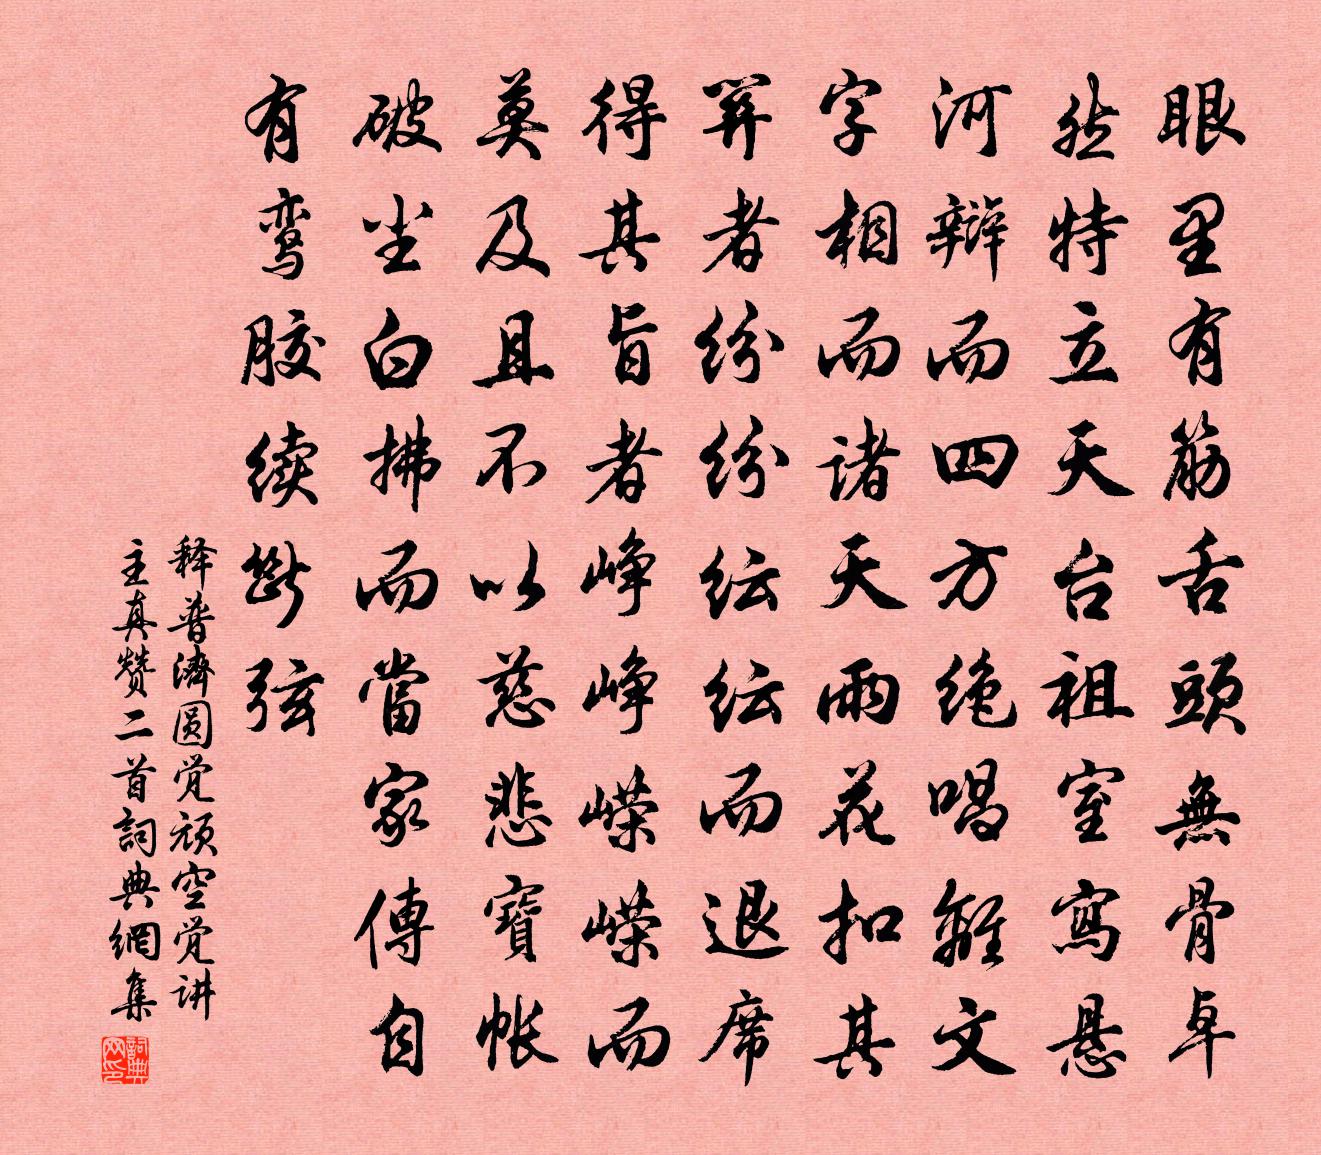 眼里有筋舌頭無骨卓
然特立天台祖室寫悬
河辯而四方绝唱離文
字相而诸天雨花扣其
者纷纷纭纭而退席
得其旨者峥峥嵘嵘而
莫及且不以慈悲寶帐
破尘白拂而當家傳自
有鸾胶续斷弦
释普濟圆觉顽空觉讲
主真赞二首詞典網集
詞典
网印